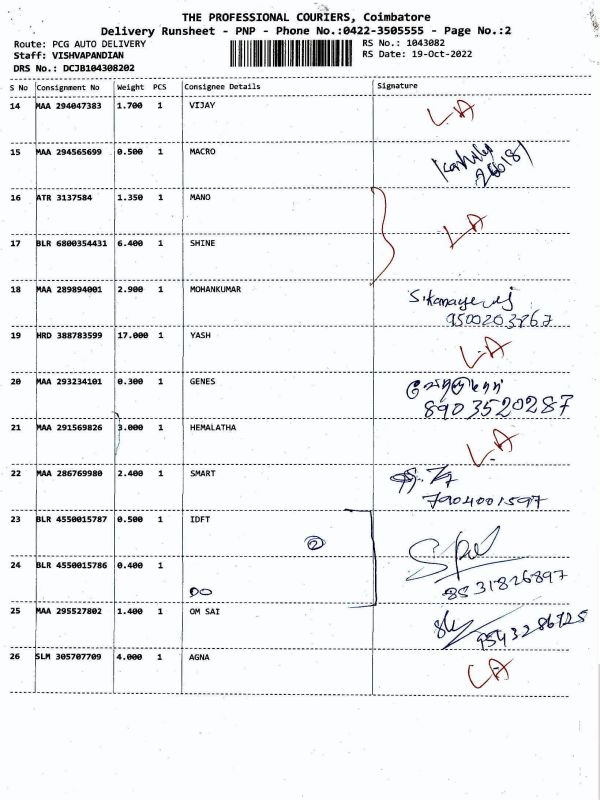 THE PROFESSIONAL COURIERS, Coimbatore
Delivery Runsheet - PNP - Phone No.:0422-3505555 - Page No.:2
Route: PCG AUTO DELIVERY
Staff: VISHVAPANDIAN
DRS No.: DCJB104308202
RS No.: 1043082
RS Date: 19-Oct-2022
S No Consignment No Weight PCS Consignee Details Signature
14 MAA 294047383 1.700 1 VIJAY L.A
15 MAA 294565699 0.500 1 MACRO
16 ATR 3137584 1.350 1 MANO
L.A
17 BLR 6800354431 6.400 1 SHINE
18 MAA 289894001 2.900 1 MOHANKUMAR
9500203867
19 HRD 388783599 17.000 1 YASH L.A
20 MAA 293234101 0.300 1 GENES
8903520287
21 MAA 291569826 3.000 1 HEMALATHA L.A
22 MAA 286769980 2.400 1 SMART
7904001597
23 BLR 4550015787 0.500 1 IDFT
2
24 BLR 4550015786 0.400 1
DO
8531826897
25 MAA 295527802 1.400 1 OM SAI
9543286725
26 SLM 305707709 4.000 1 AGNA L.A